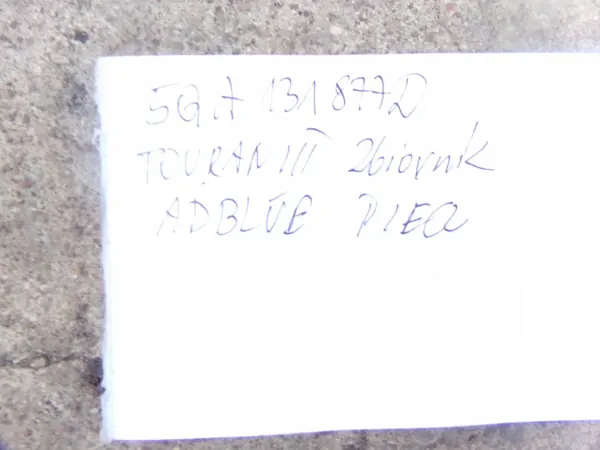 5QA 131 877D
TOURAN III zbiornik
ADBLUE PIEC